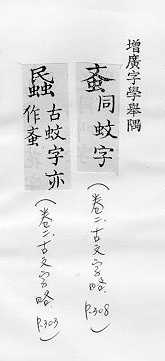 增廣字學舉隅
蚉同蚊字
（卷二古文字略 P.308）
蟁古蚊字亦
作蚉
（卷二古文字略 P.303）